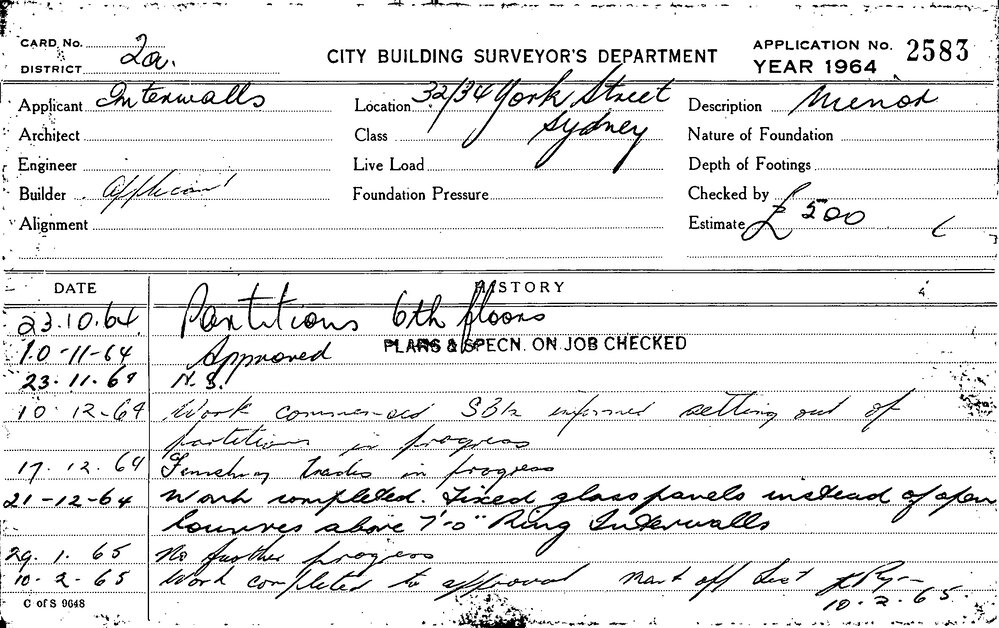 CARD No. 2a.
DISTRICT
CITY BUILDING SURVEYOR'S DEPARTMENT
APPLICATION No. 2583
YEAR 1964
Applicant Interwalls
Location 32/34 York Street
Sydney
Description Menor
Architect
Class
Nature of Foundation
Engineer
Live Load
Depth of Footings
Builder applicant
Foundation Pressure
Checked by
Alignment
Estimate £500
DATE HISTORY
23.10.64. Partitions 6th floors
10-11-64 Approved PLANS & SPECN. ON JOB CHECKED
23.11.64 N.S.
10.12.64 Work commenced informed setting out of
partitions in progress
17.12.64 Finishing trades in progress
21-12-64 Work completed. Fixed glass panels instead of open
louvres above 7'-0" Ring Interwalls
29.1.65 No further progress
10-2-65 Work completed to approval mark off
10.2.65.
C of S 9648